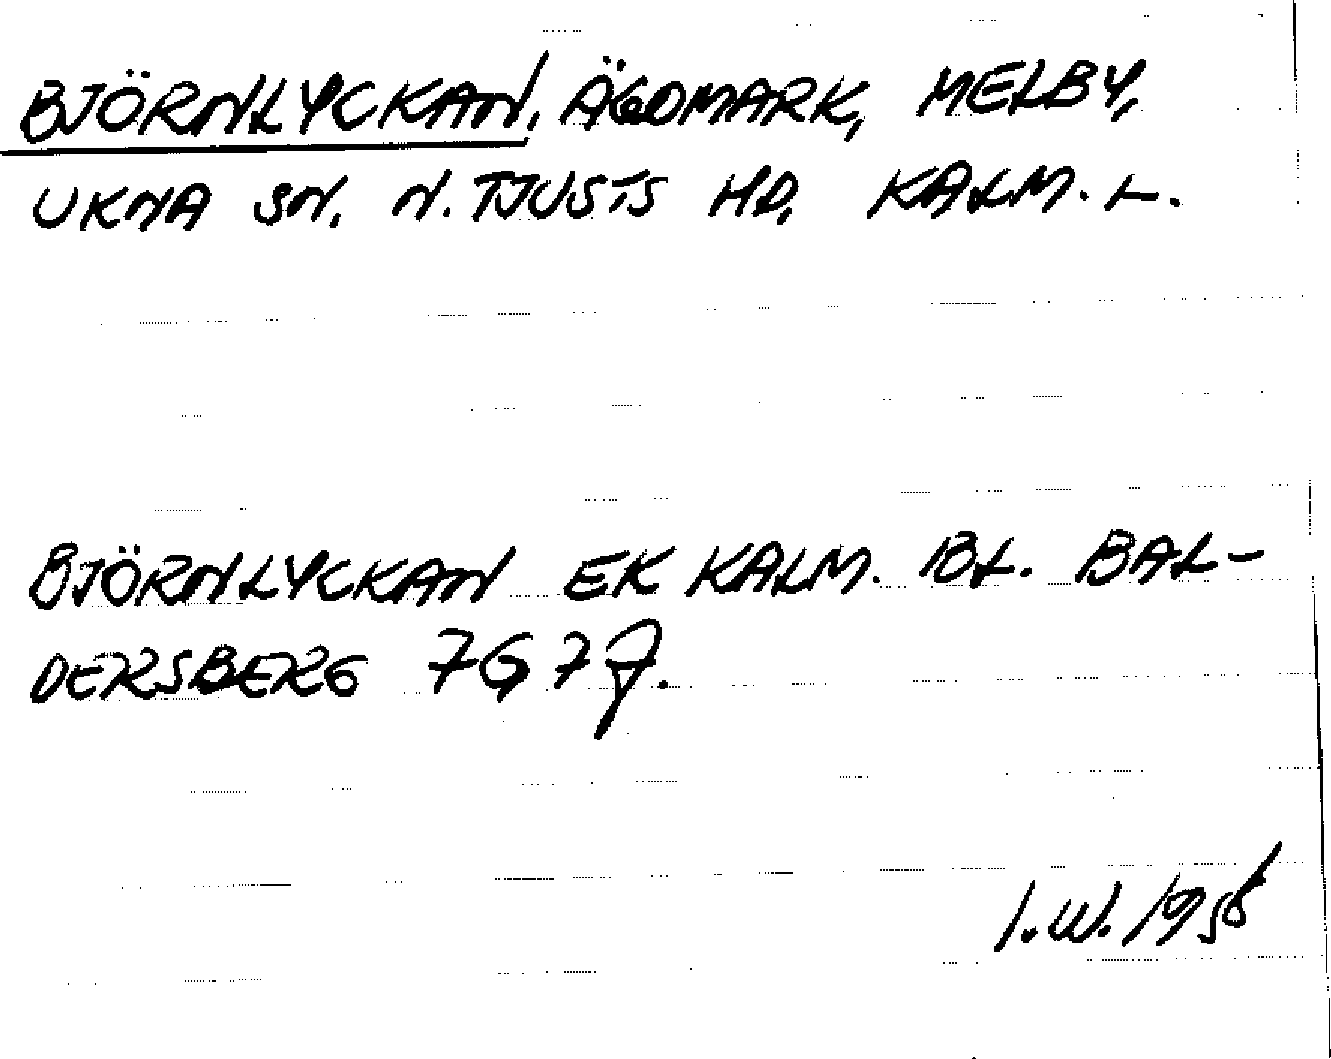 BJÖRNLYCKAN, ÄGOMARK, MELBY,
UKNA SN. N. TJUSTS HD, KALM. L.
BJÖRNLYCKAN EK KALM. BL. BAL-
DERSBERG 7G 7J.
I.W. 1956